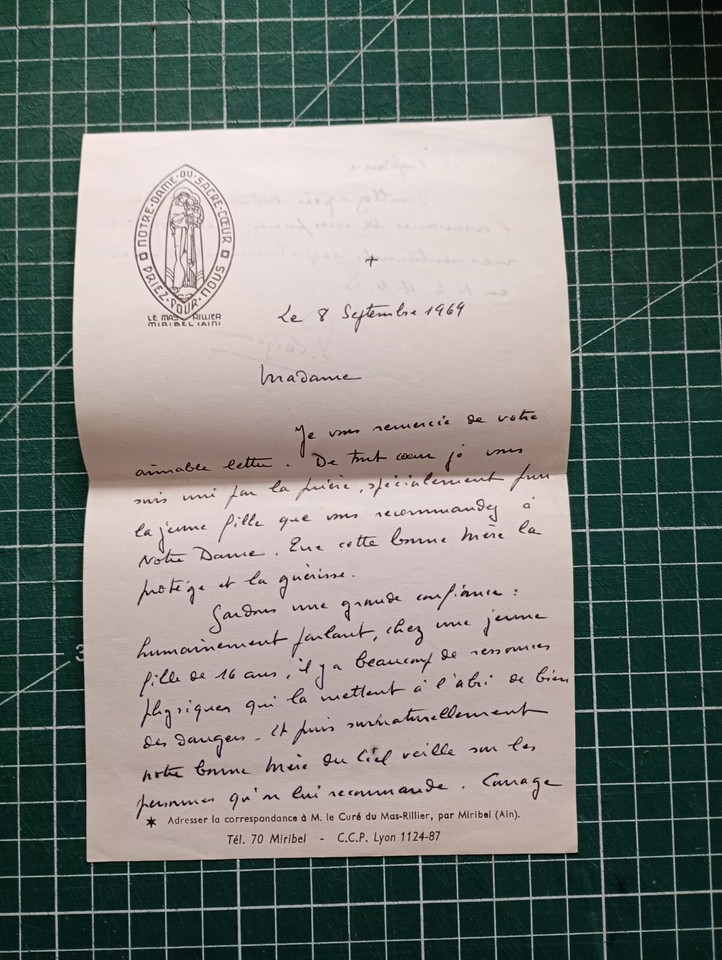 NOTRE·DAME·DU·SACRE·CŒUR
PRIEZ·POUR·NOUS
LE MAS RILLIER
MIRIBEL (AIN)
+
Le 8 Septembre 1969
Madame
Je vous remercie de votre
aimable lettre. De tout cœur je vous
suis uni par la prière, spécialement pour
la jeune fille que vous recommandez à
Notre Dame. Que cette bonne Mère la
protège et la guérisse.
Gardons une grande confiance :
humainement parlant, chez une jeune
fille de 16 ans, il y a beaucoup de ressources
physiques qui la mettent à l'abri de bien
des dangers - Et puis surnaturellement
notre bonne Mère du Ciel veille sur les
personnes qu'on lui recommande. Courage
* Adresser la correspondance à M. le Curé du Mas-Rillier, par Miribel (Ain).
Tél. 70 Miribel - C.C.P. Lyon 1124-87